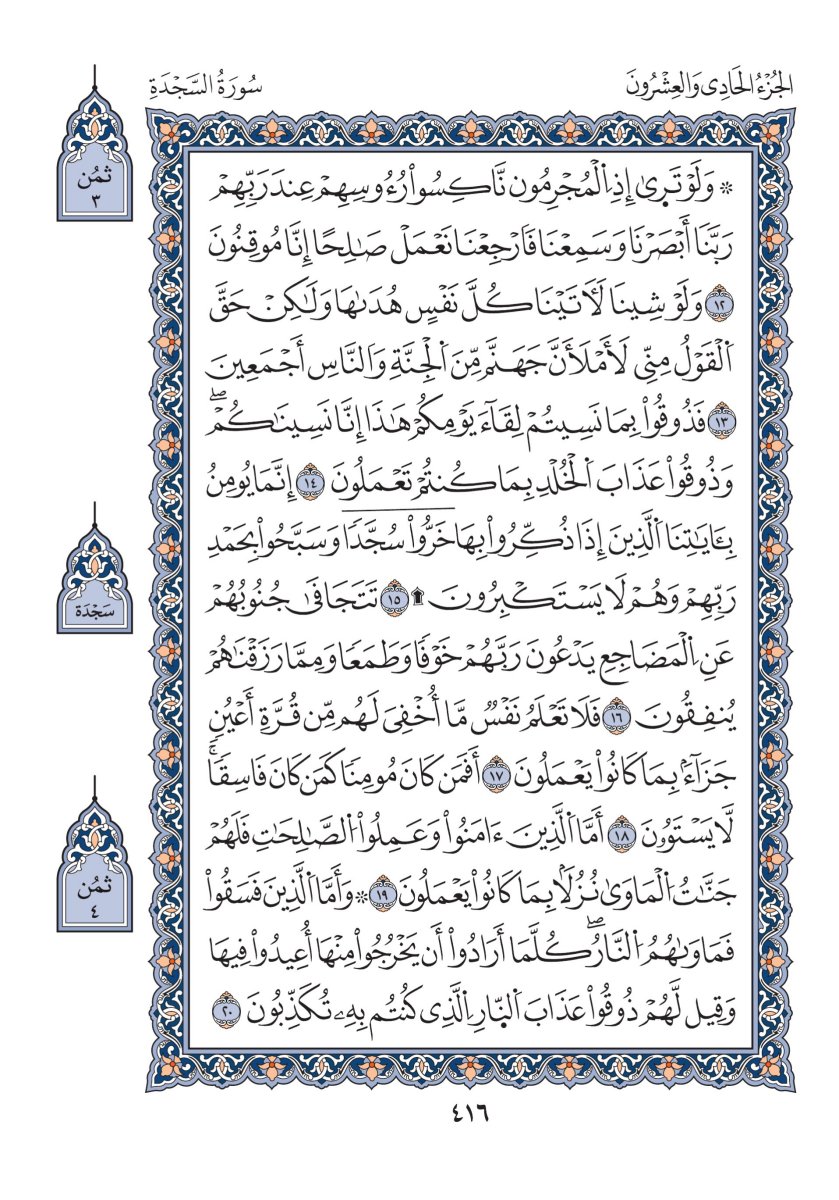 الجُزْءُ الحَادِى وَالعِشْرُونَ
سُورَةُ السَّجْدَةِ
ثمُن
٣
۞ وَلَوْ تَرِىٰٓ إِذِ اِ۬لْمُجْرِمُونَ نَاكِسُواْ رُءُوسِهِمْ عِندَ رَبِّهِمْ
رَبَّنَا أَبْصَرْنَا وَسَمِعْنَا فَارْجِعْنَا نَعْمَلْ صَٰلِحًا إِنَّا مُوقِنُونَ
١٢ وَلَوْ شِينَا لَأَتَيْنَا كُلَّ نَفْسٍ هُدَىٰهَا وَلَٰكِنْ حَقَّ
اَ۬لْقَوْلُ مِنِّى لَأَمْلَأَنَّ جَهَنَّمَ مِنَ اَ۬لْجِنَّةِ وَالنَّاسِ أَجْمَعِينَ
١٣ فَذُوقُواْ بِمَا نَسِيتُمْ لِقَآءَ يَوْمِكُمْ هَٰذَا إِنَّا نَسِينَٰكُمْۖ
وَذُوقُواْ عَذَابَ اَ۬لْخُلْدِ بِمَا كُنتُمْ تَعْمَلُونَ ١٤ إِنَّمَا يُومِنُ
بِـَٔايَٰتِنَا اَ۬لَّذِينَ إِذَا ذُكِّرُواْ بِهَا خَرُّواْ سُجَّدًا وَسَبَّحُواْ بِحَمْدِ
رَبِّهِمْ وَهُمْ لَا يَسْتَكْبِرُونَ ۩ ١٥ تَتَجَافَىٰ جُنُوبُهُمْ
سَجْدَة
عَنِ اِ۬لْمَضَاجِعِ يَدْعُونَ رَبَّهُمْ خَوْفًا وَطَمَعًا وَمِمَّا رَزَقْنَٰهُمْ
يُنفِقُونَ ١٦ فَلَا تَعْلَمُ نَفْسٌ مَّا أُخْفِىَ لَهُم مِّن قُرَّةِ أَعْيُنٍ
جَزَآءًۢ بِمَا كَانُواْ يَعْمَلُونَ ١٧ أَفَمَن كَانَ مُومِنًا كَمَن كَانَ فَاسِقًاۚ
لَّا يَسْتَوُۥنَ ١٨ أَمَّا اَ۬لَّذِينَ ءَامَنُواْ وَعَمِلُواْ اُ۬لصَّٰلِحَٰتِ فَلَهُمْ
جَنَّٰتُ اُ۬لْمَاوَىٰ نُزُلًاۢ بِمَا كَانُواْ يَعْمَلُونَ ١٩ ۞ وَأَمَّا اَ۬لَّذِينَ فَسَقُواْ
ثمُن
٤
فَمَاوَىٰهُمُ اُ۬لنَّارُۖ كُلَّمَا أَرَادُواْ أَن يَخْرُجُواْ مِنْهَا أُعِيدُواْ فِيهَا
وَقِيل لَّهُمْ ذُوقُواْ عَذَابَ اَ۬لنّ۪ارِ اِ۬لَّذِى كُنتُم بِهِۦ تُكَذِّبُونَ ٢٠
٤١٦